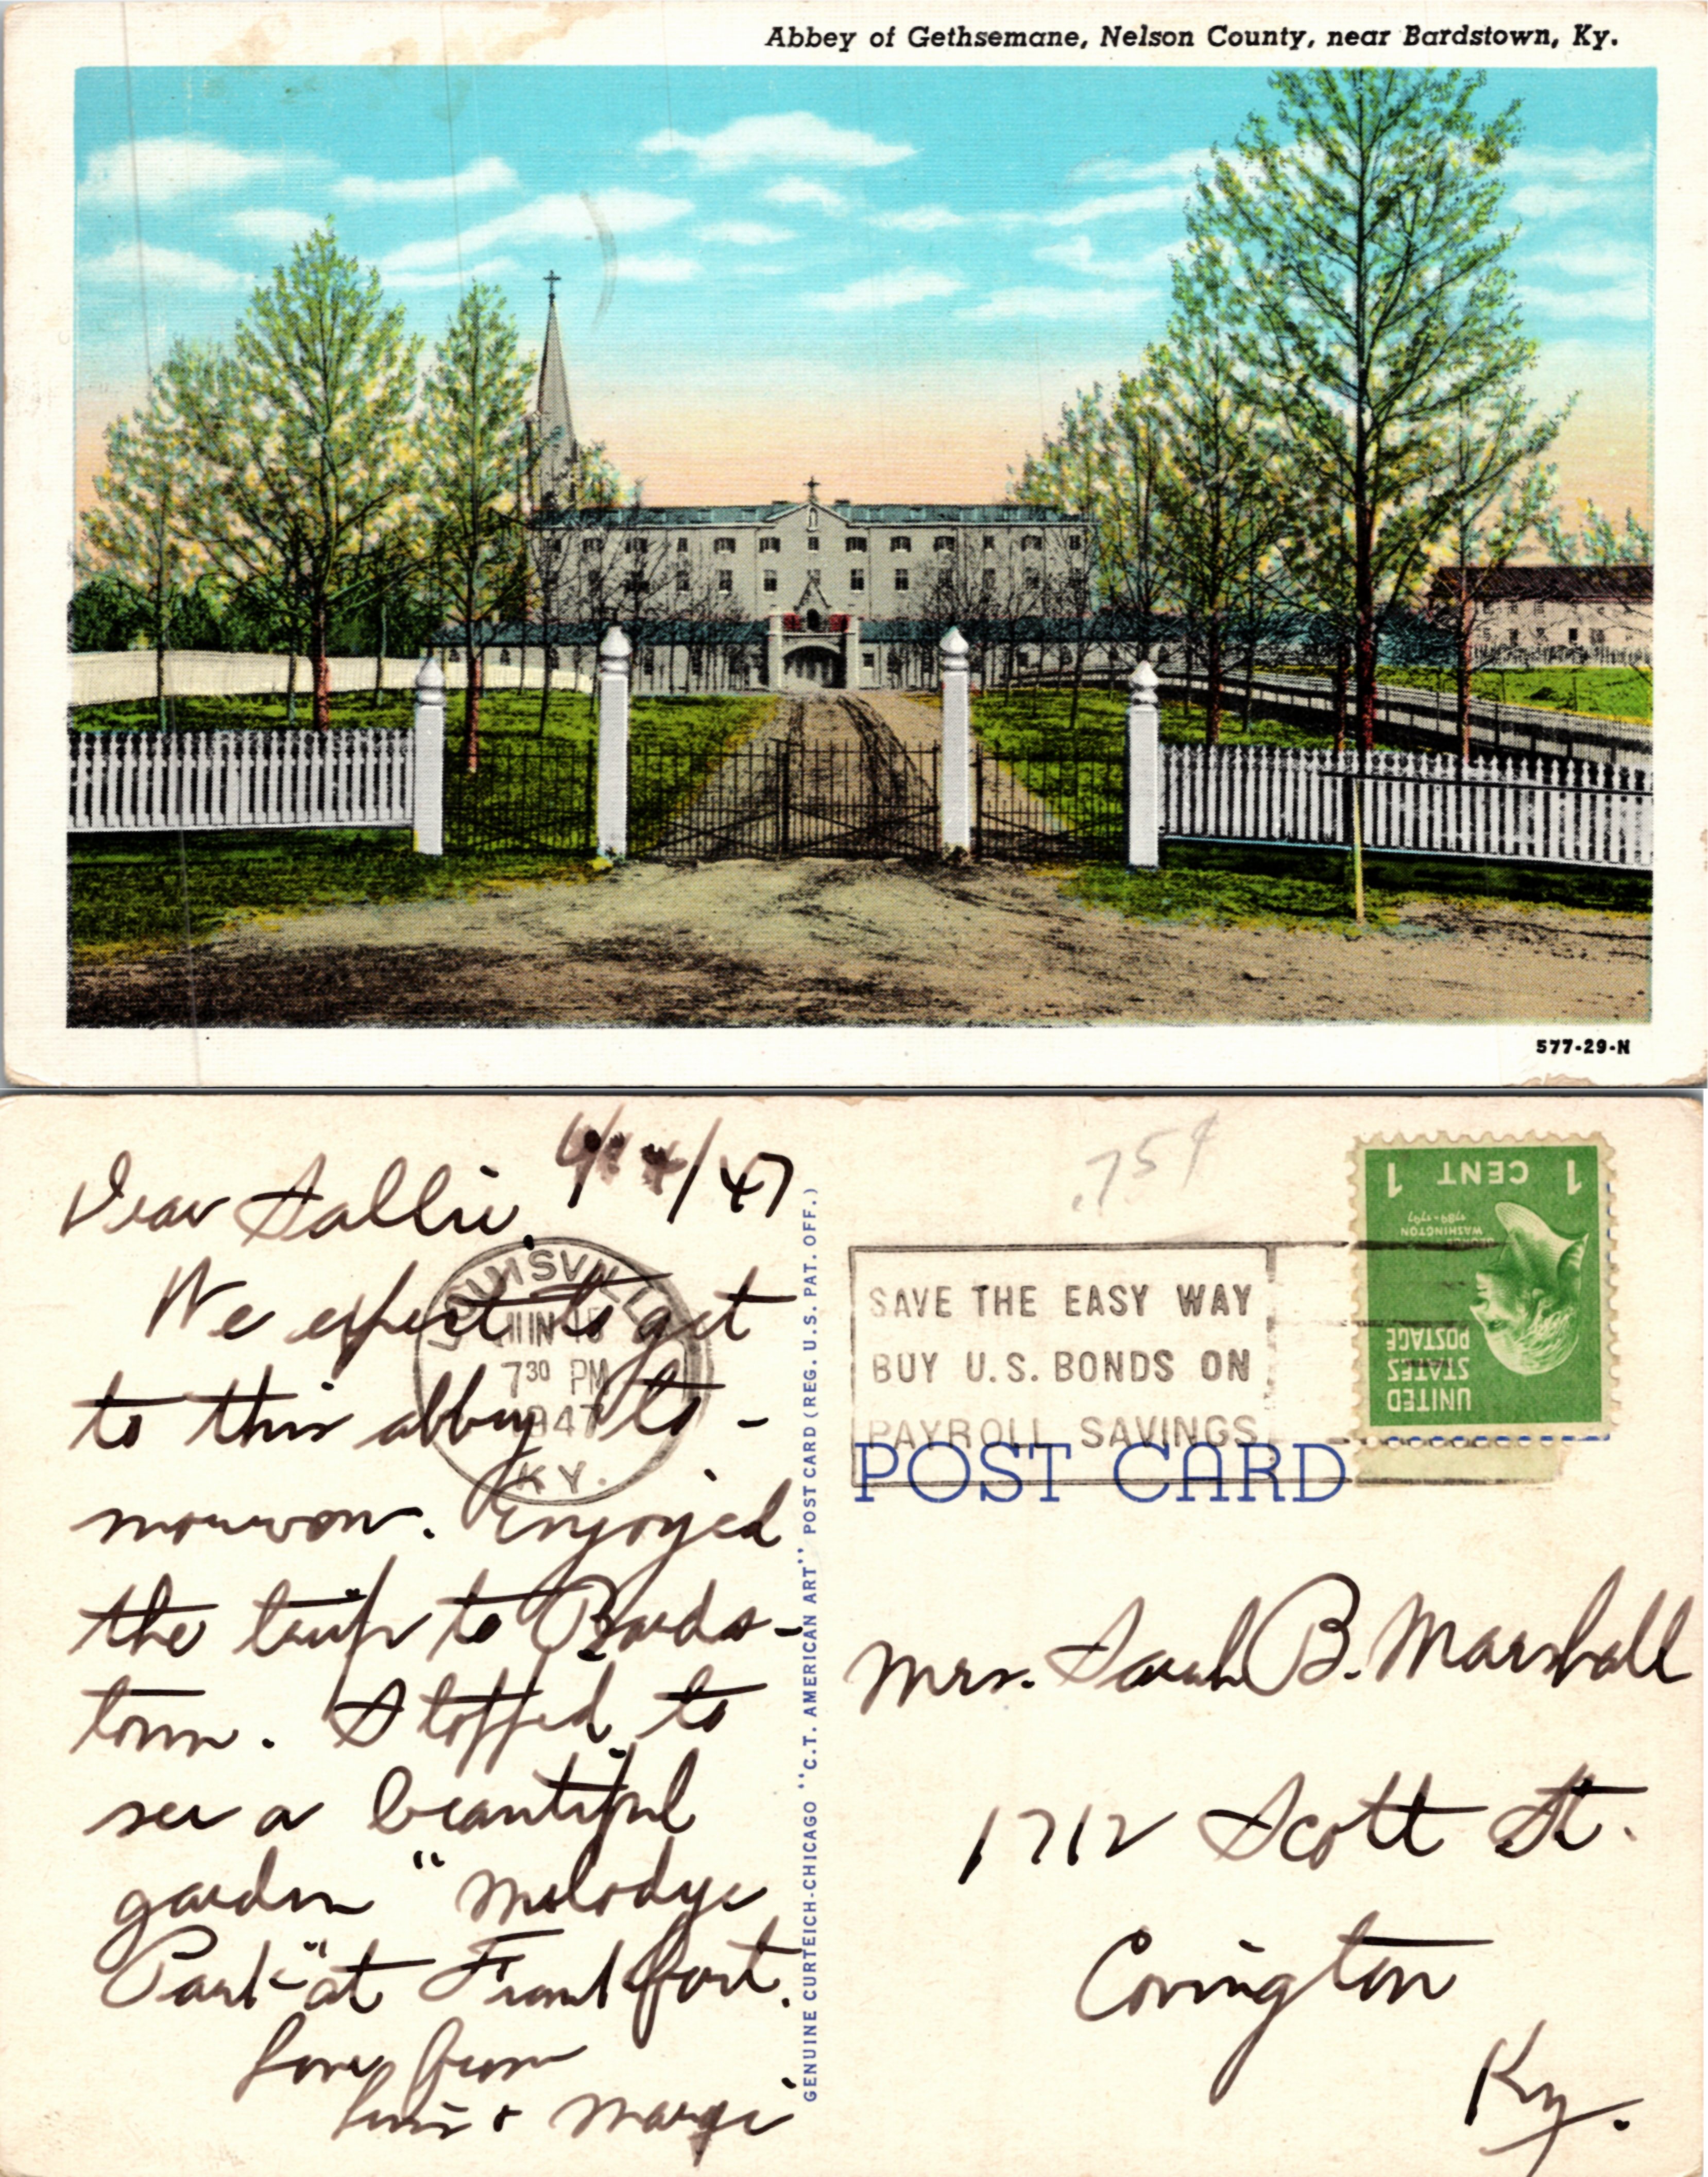 Abbey of Gethsemane, Nelson County, near Bardstown, Ky.
577-29-N
Dear Sallie,
/47
We expect to get
to this abbey to-
morrow. Enjoyed
the trip to Bards-
town. Stopped to
see a beautiful
garden "Melodye
Park" at Frankfort.
Love from
& Marge
LOUISVILLE
JUN
7 30 PM
1947
KY.
GENUINE CURTEICH-CHICAGO "C.T. AMERICAN ART" POST CARD (REG. U.S. PAT. OFF.)
.75¢
SAVE THE EASY WAY
BUY U.S. BONDS ON
PAYROLL SAVINGS
POST CARD
1 CENT 1
GEORGE
WASHINGTON
1789-1797
UNITED
STATES
POSTAGE
Mrs. Sarah B. Marshall
1712 Scott St.
Covington
Ky.